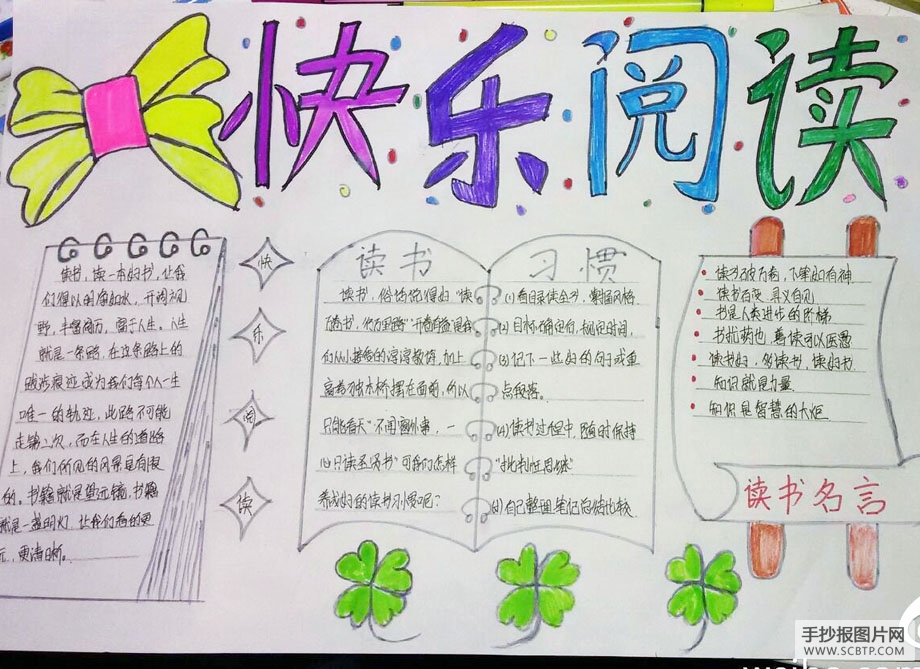 快乐阅读
读书，读一本好书，让我
们得以明净如水，开阔视
野，丰富阅历，益于人生。人生
就是一条路，在这条路上的
跋涉痕迹成为我们每个人一生
唯一的轨迹，此路不可能
走第二次，而在人生的道路
上，我们所见的风景是有限
的。书籍就是望远镜，书籍
就是一盏明灯，让我们看的更
远，更清晰。
快
乐
阅
读
读书
读书，俗话说得好"读
万卷书，行万里路""开卷有益"
们从小接受的谆谆教诲，加上
高考独木桥摆在面前，所以
只能看天"不闻窗外事，一
心只读圣贤书"可我们怎样
养成好的读书习惯呢？
习惯
(1)看目录读全书，掌握风格
(2)目标确定自，规定时间，
(3)记下一些好的句子或重
点段落。
(4)读书过程中，随时保持
"批判性思维"
(5)自己整理笔记总结比较
读书破万卷，下笔如有神
读书百变，其义自见
书是人类进步的阶梯
书犹药也，善读可以医愚
读书好，多读书，读好书
知识就是力量
知识是智慧的火炬
读书名言
手抄报图片网
WWW.SCBTP.COM